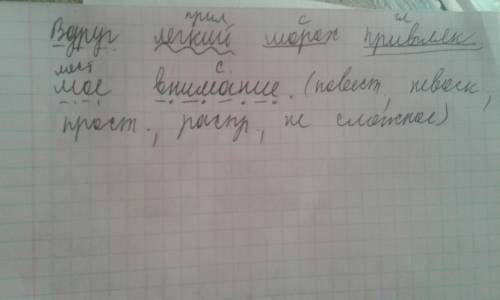 прил с г
Вдруг легкий шорох привлек
мест с.
мое внимание. (повест, невоск,
прост., распр., не сложное)